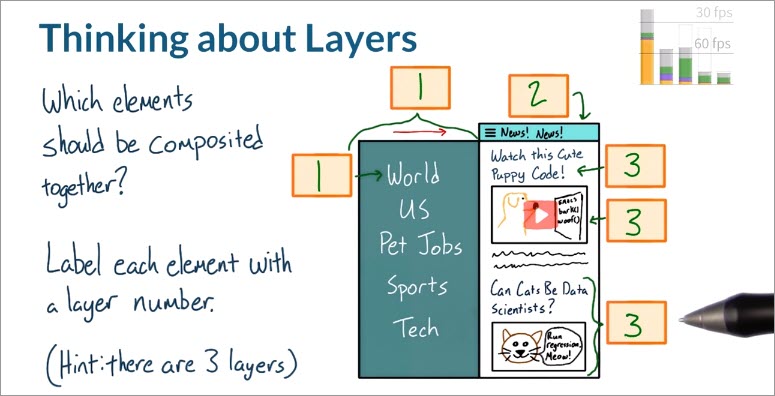 Thinking about Layers
30 fps
60 fps
Which elements
should be composited
together?
Label each element with
a layer number.
(Hint: there are 3 layers)
1
2
1
World
US
Pet Jobs
Sports
Tech
News! News!
Watch this Cute
Puppy Code!
bark()
woof()
Can Cats Be Data
Scientists?
Run
regression.
Meow!
3
3
3